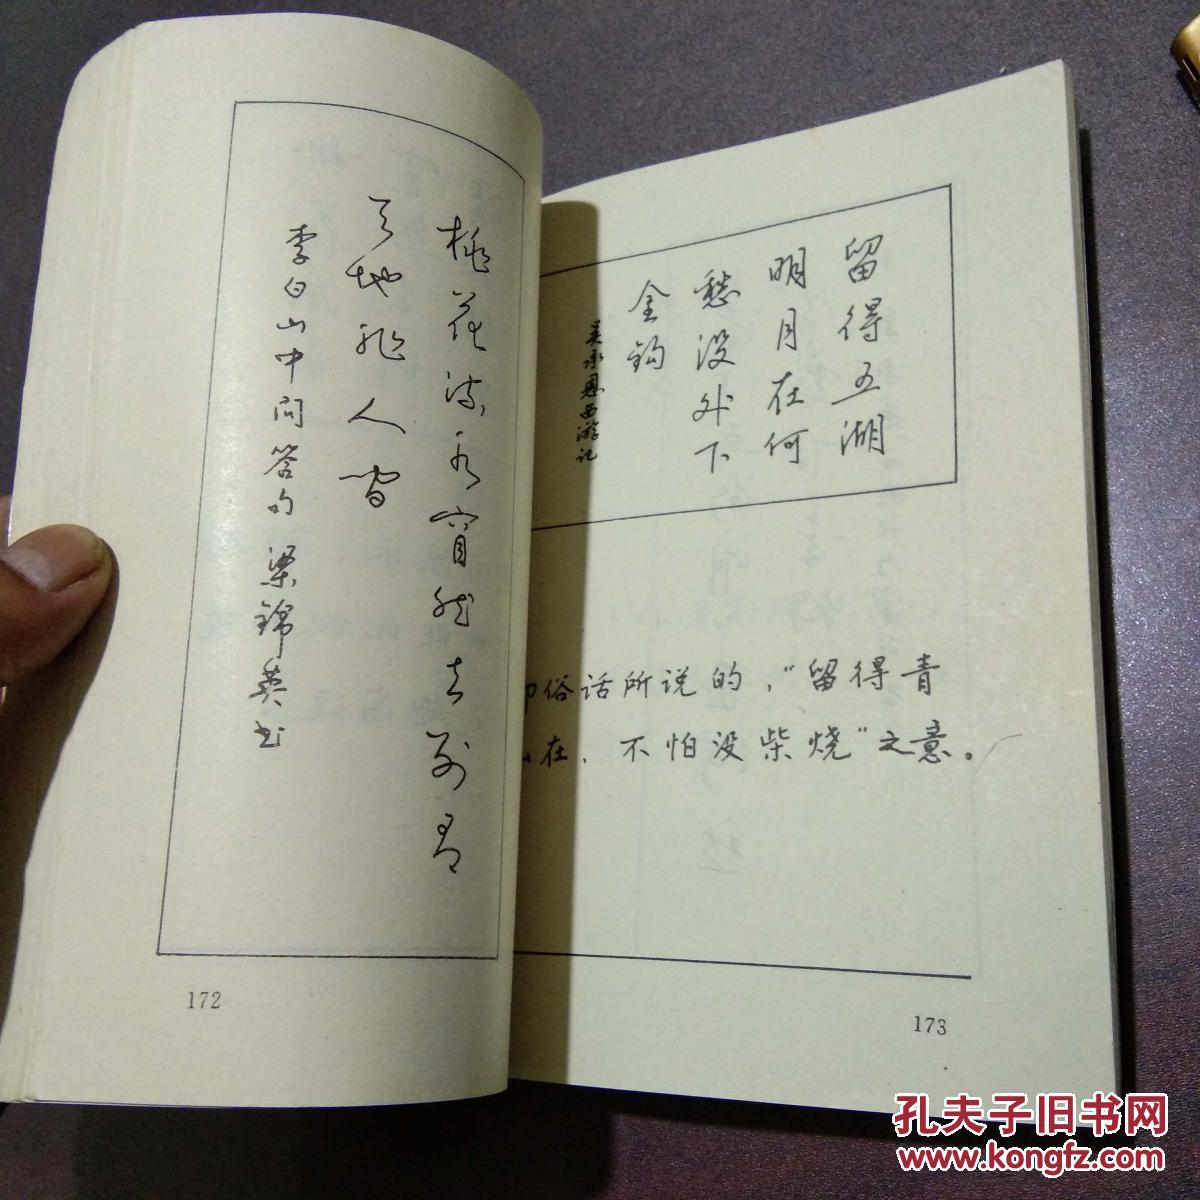 桃花流水窅然去别有
天地非人间
李白山中问答句 梁锦英书
172
留得五湖
明月在何
愁没处下
金钩
吴承恩西游记
俗话所说的，“留得青
在，不怕没柴烧”之意。
173
孔夫子旧书网
www.kongfz.com